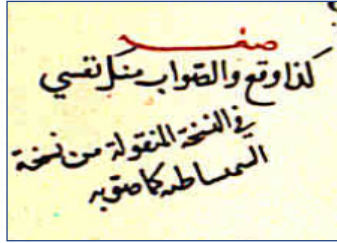 صفـــه
كذا وقع والصواب منكل نفسي
في النسخة المنقولة من نسخة
السميساطي كما صوّبه